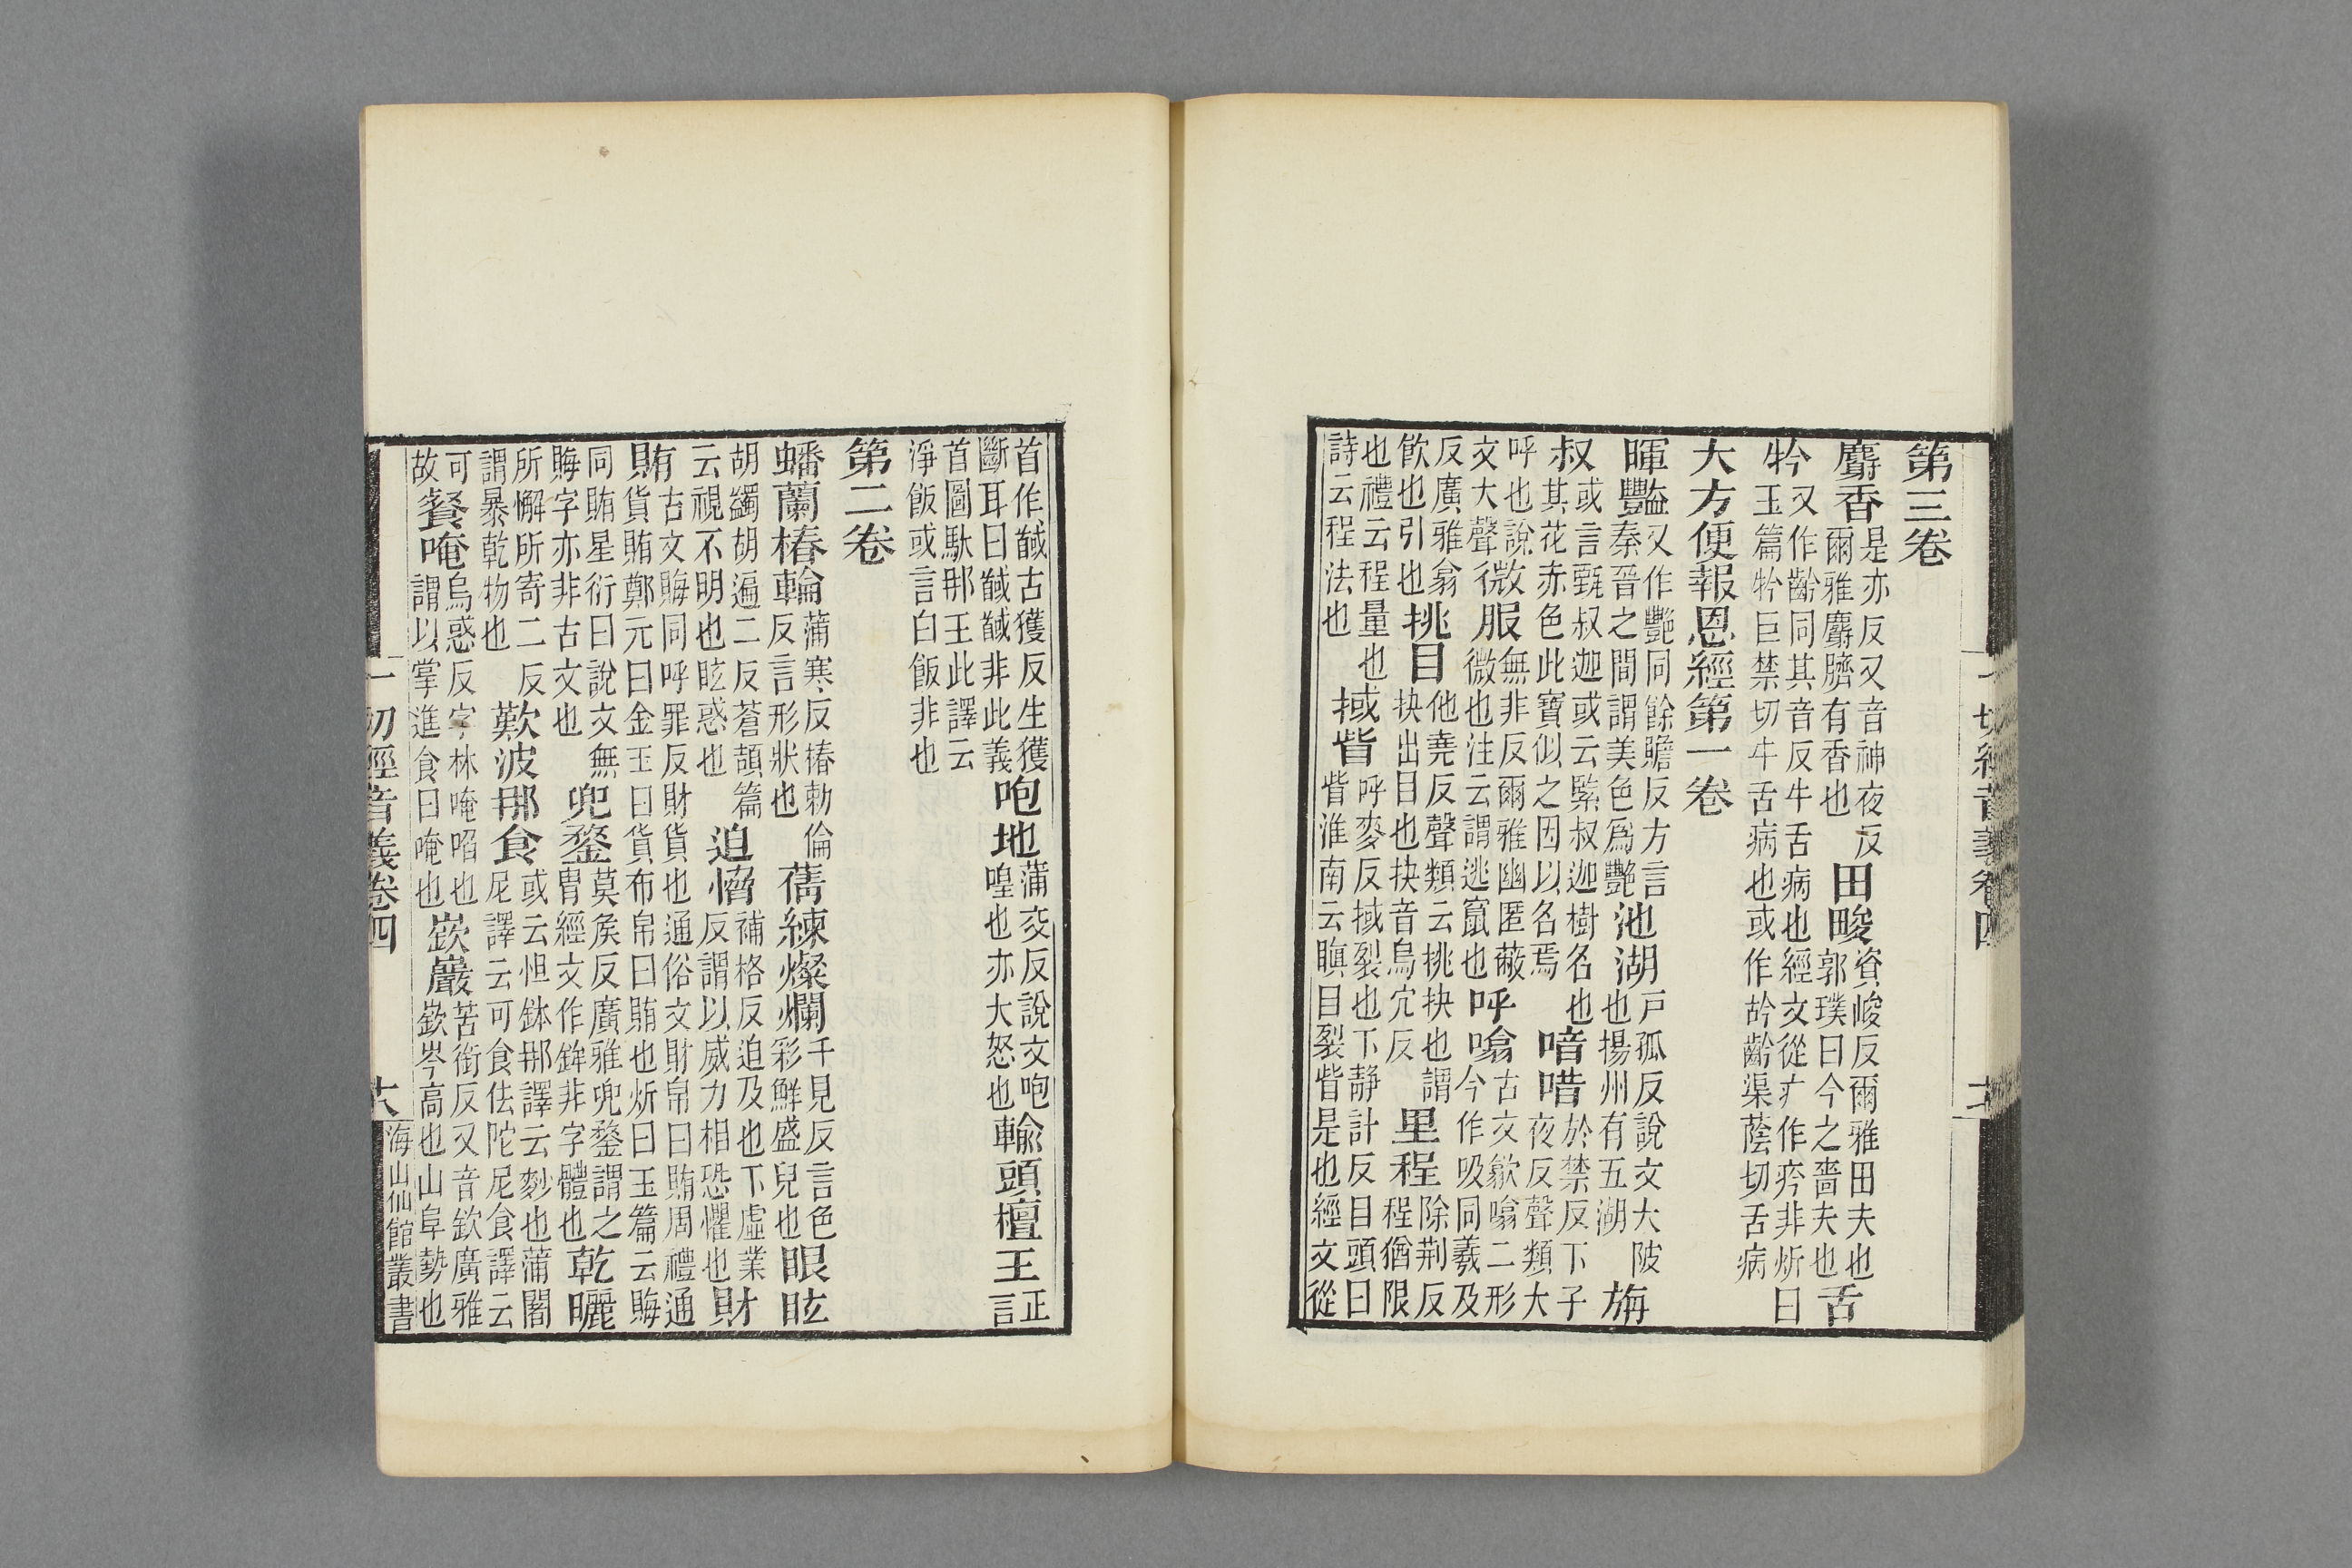 一切經音義卷四
第三卷
麝香是亦反又音神夜反爾雅麝臍有香也田畯資峻反爾雅田夫也郭璞曰今之嗇夫也舌
又作齡同其音反牛舌病也經文從疒作疨非炘曰玉篇巨禁切牛舌病也或作齡渠蔭切舌病
大方便報恩經第一卷
暉豔又作艷同餘贍反方言秦晉之間謂美色爲艷池湖戸孤反說文大陂也揚州有五湖栴
叔或言甄叔迦或云緊叔迦樹名也其花赤色此寶似之因以名焉喑唶於禁反下子夜反聲類大
呼也說文大聲微服無非反爾雅幽匿蔽微也注云謂逃竄也呼噏古文歙噏二形今作吸同羲及
反廣雅翕飲也引也挑目他堯反聲類云挑抉也謂抉出目也抉音烏穴反里程除荆反程猶限
也禮云程量也詩云程法也掝眥呼麥反掝裂也下靜計反目頭曰眥淮南云瞋目裂眥是也經文從
首作馘古獲反生獲斷耳曰馘馘非此義咆地蒲交反說文咆嘷也亦大怒也輸頭檀王正言
首圖馱那王此譯云淨飯或言白飯非也
第二卷
蟠蘭椿輪蒲寒反椿勅倫反言形狀也蒨練燦爛千見反言色彩鮮盛皃也眼眩
胡蠲胡遍二反蒼頡篇云視不明也眩惑也迫愶補格反迫及也下虛業反謂以威力相恐懼也財
賄古文䀲同呼罪反財貨也通俗文財帛曰賄周禮通貨賄鄭元曰金玉曰貨布帛曰賄也炘曰玉篇云䀲
同賄星衍曰說文無䀲字亦非古文也兜鍪莫侯反廣雅兜鍪謂之冑經文作鉾非字體也乾曬
所懈所寄二反謂暴乾物也歎波那食或云怛鉢那譯云麨也蒲闍尼譯云可食佉陀尼食譯云
可故餐唵烏惑反字林唵㗖也謂以掌進食曰唵也嶔巖苦銜反又音欽廣雅嶔岑高也山阜勢也
一切經音義卷四 十六 海山仙館叢書